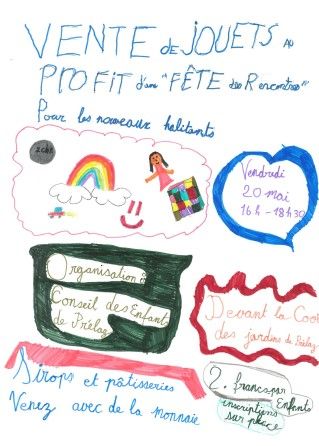 VENTE de JOUETS AU
PROFIT d'une "FÊTE des Rencontres"
Pour les nouveaux habitants
Vendredi
20 mai
16h - 18h30
Organisation :
Conseil des Enfants
de Prélaz
Devant la Coop
des jardins de Prélaz
Sirops et pâtisseries
Venez avec de la monnaie
2.- francs par
Enfants
inscriptions
sur place